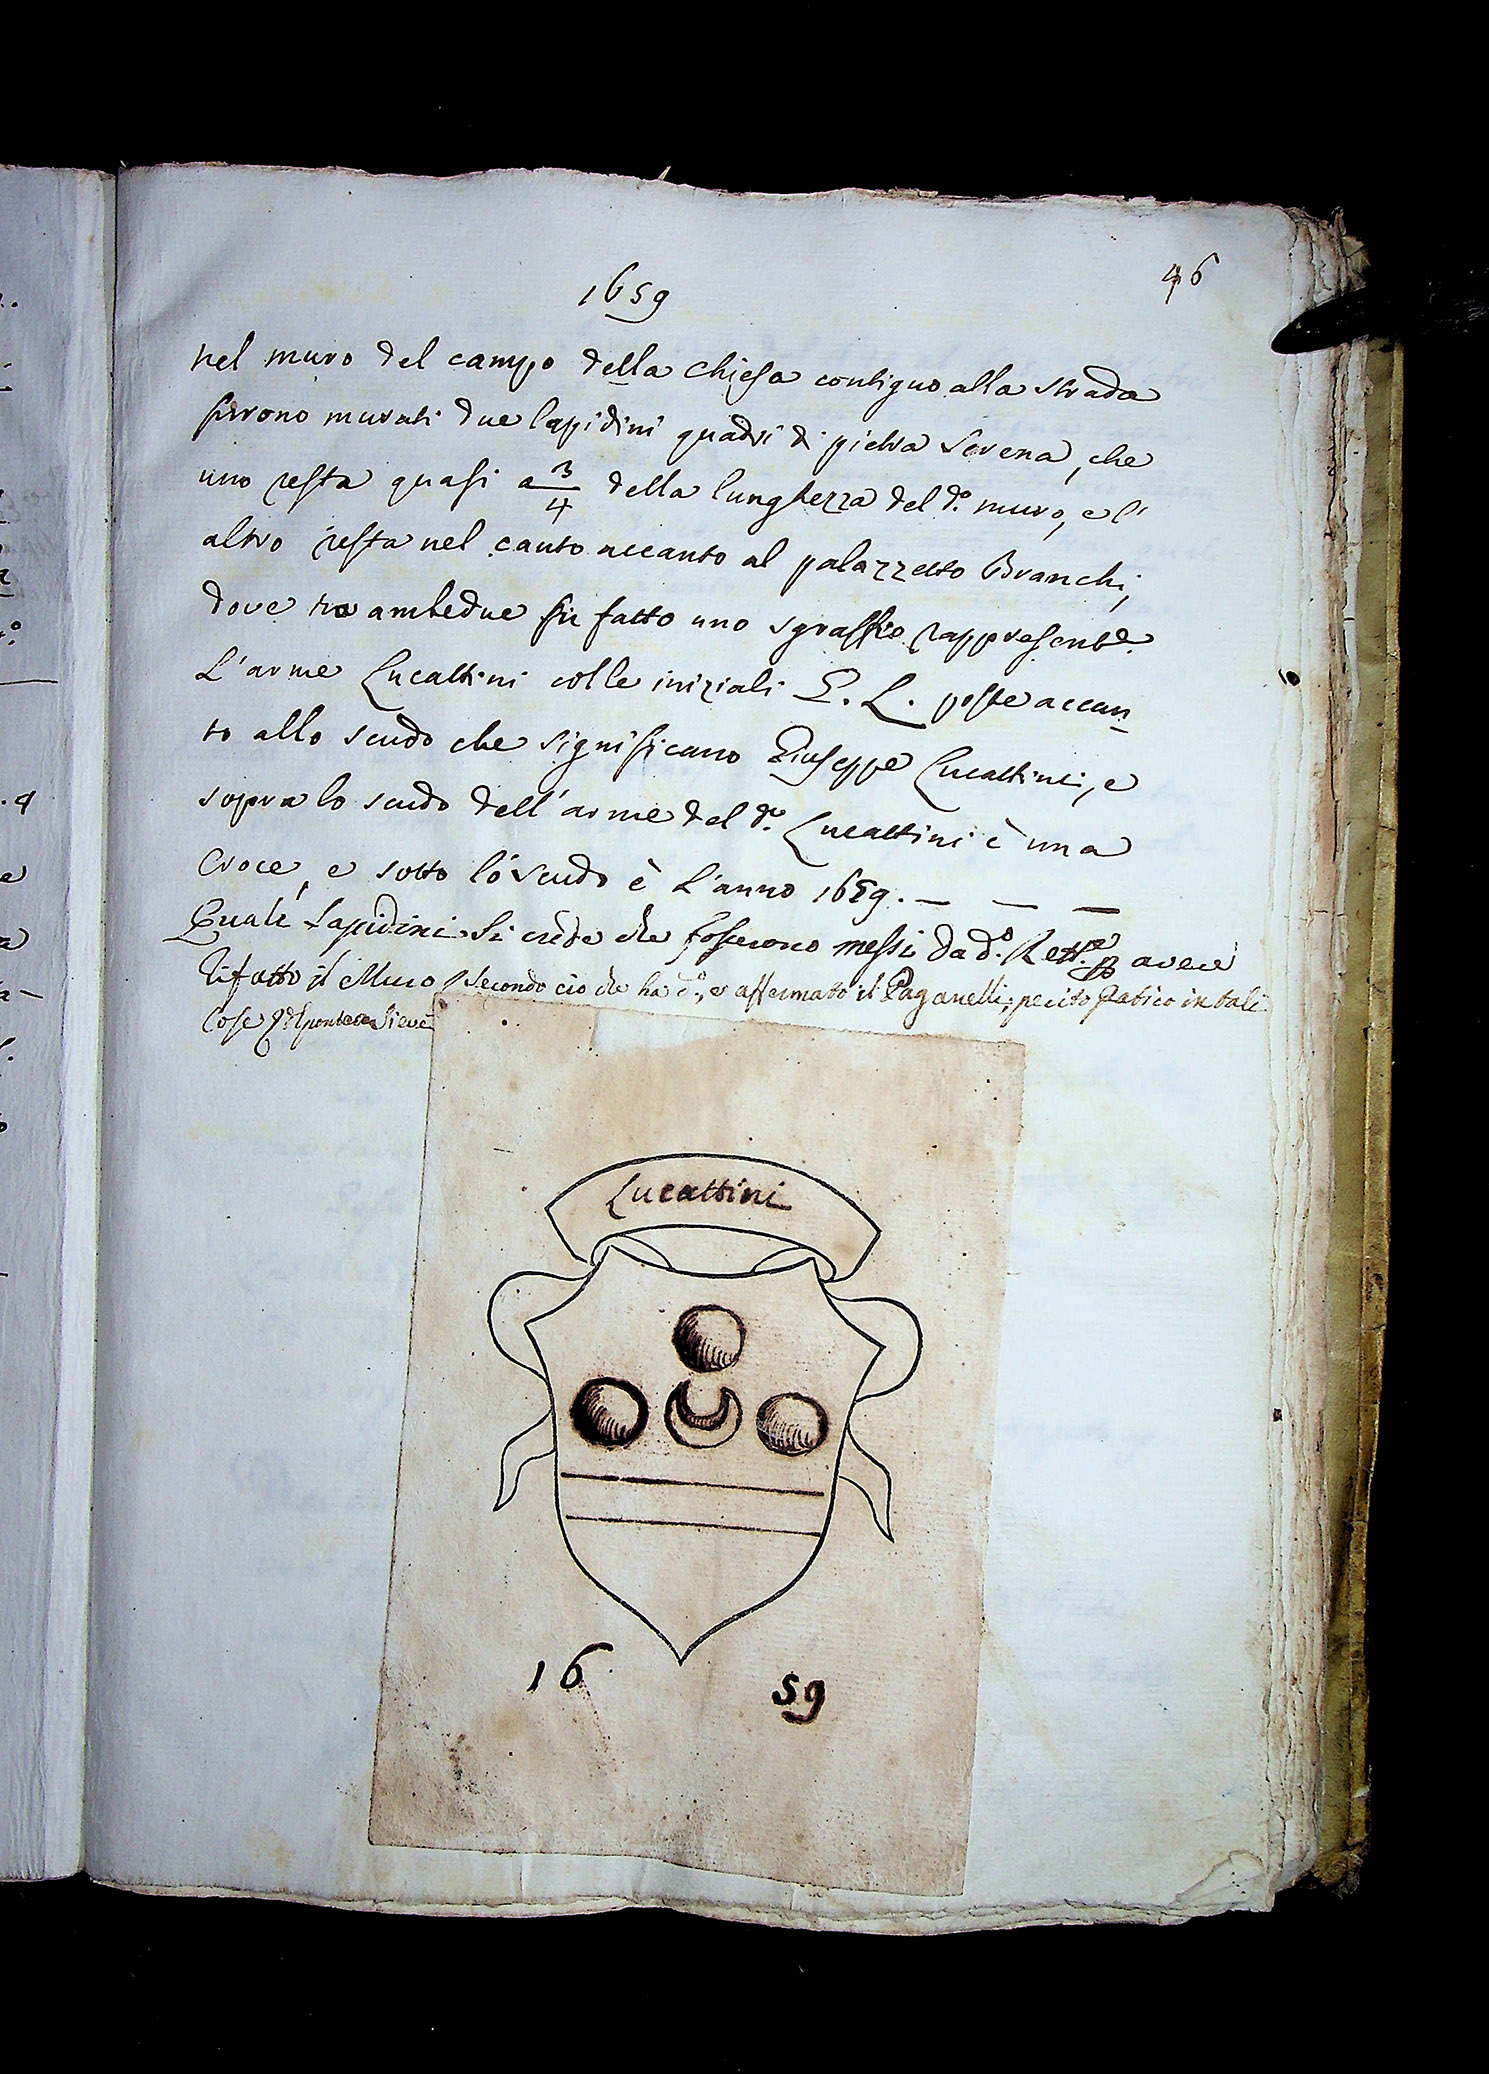 46
1659
nel muro del campo della Chiesa contiguo alla strada
furono murati due lapidini quadri di pietra Serena, che
uno resta quasi a 3/4 della lunghezza del d.º muro, e l'
altro resta nel canto accanto al palazzetto Branchi,
dove tra ambedue fu fatto uno sgraffio rappresent.e
L'arme Lucattini colle iniziali G. L. poste accan
to allo scudo che significano Giuseppe Lucattini, e
sopra lo scudo dell'arme del d.º Lucattini è una
Croce, e sotto lo scudo è L'anno 1659. — — —
Quali Lapidini si crede che fossero messi da d.º Rett.e p avere
rifatto il Muro secondo ciò che ha d.º, e affermato il Paganelli, perito pratico in tali
Cose
Lucattini
16 59